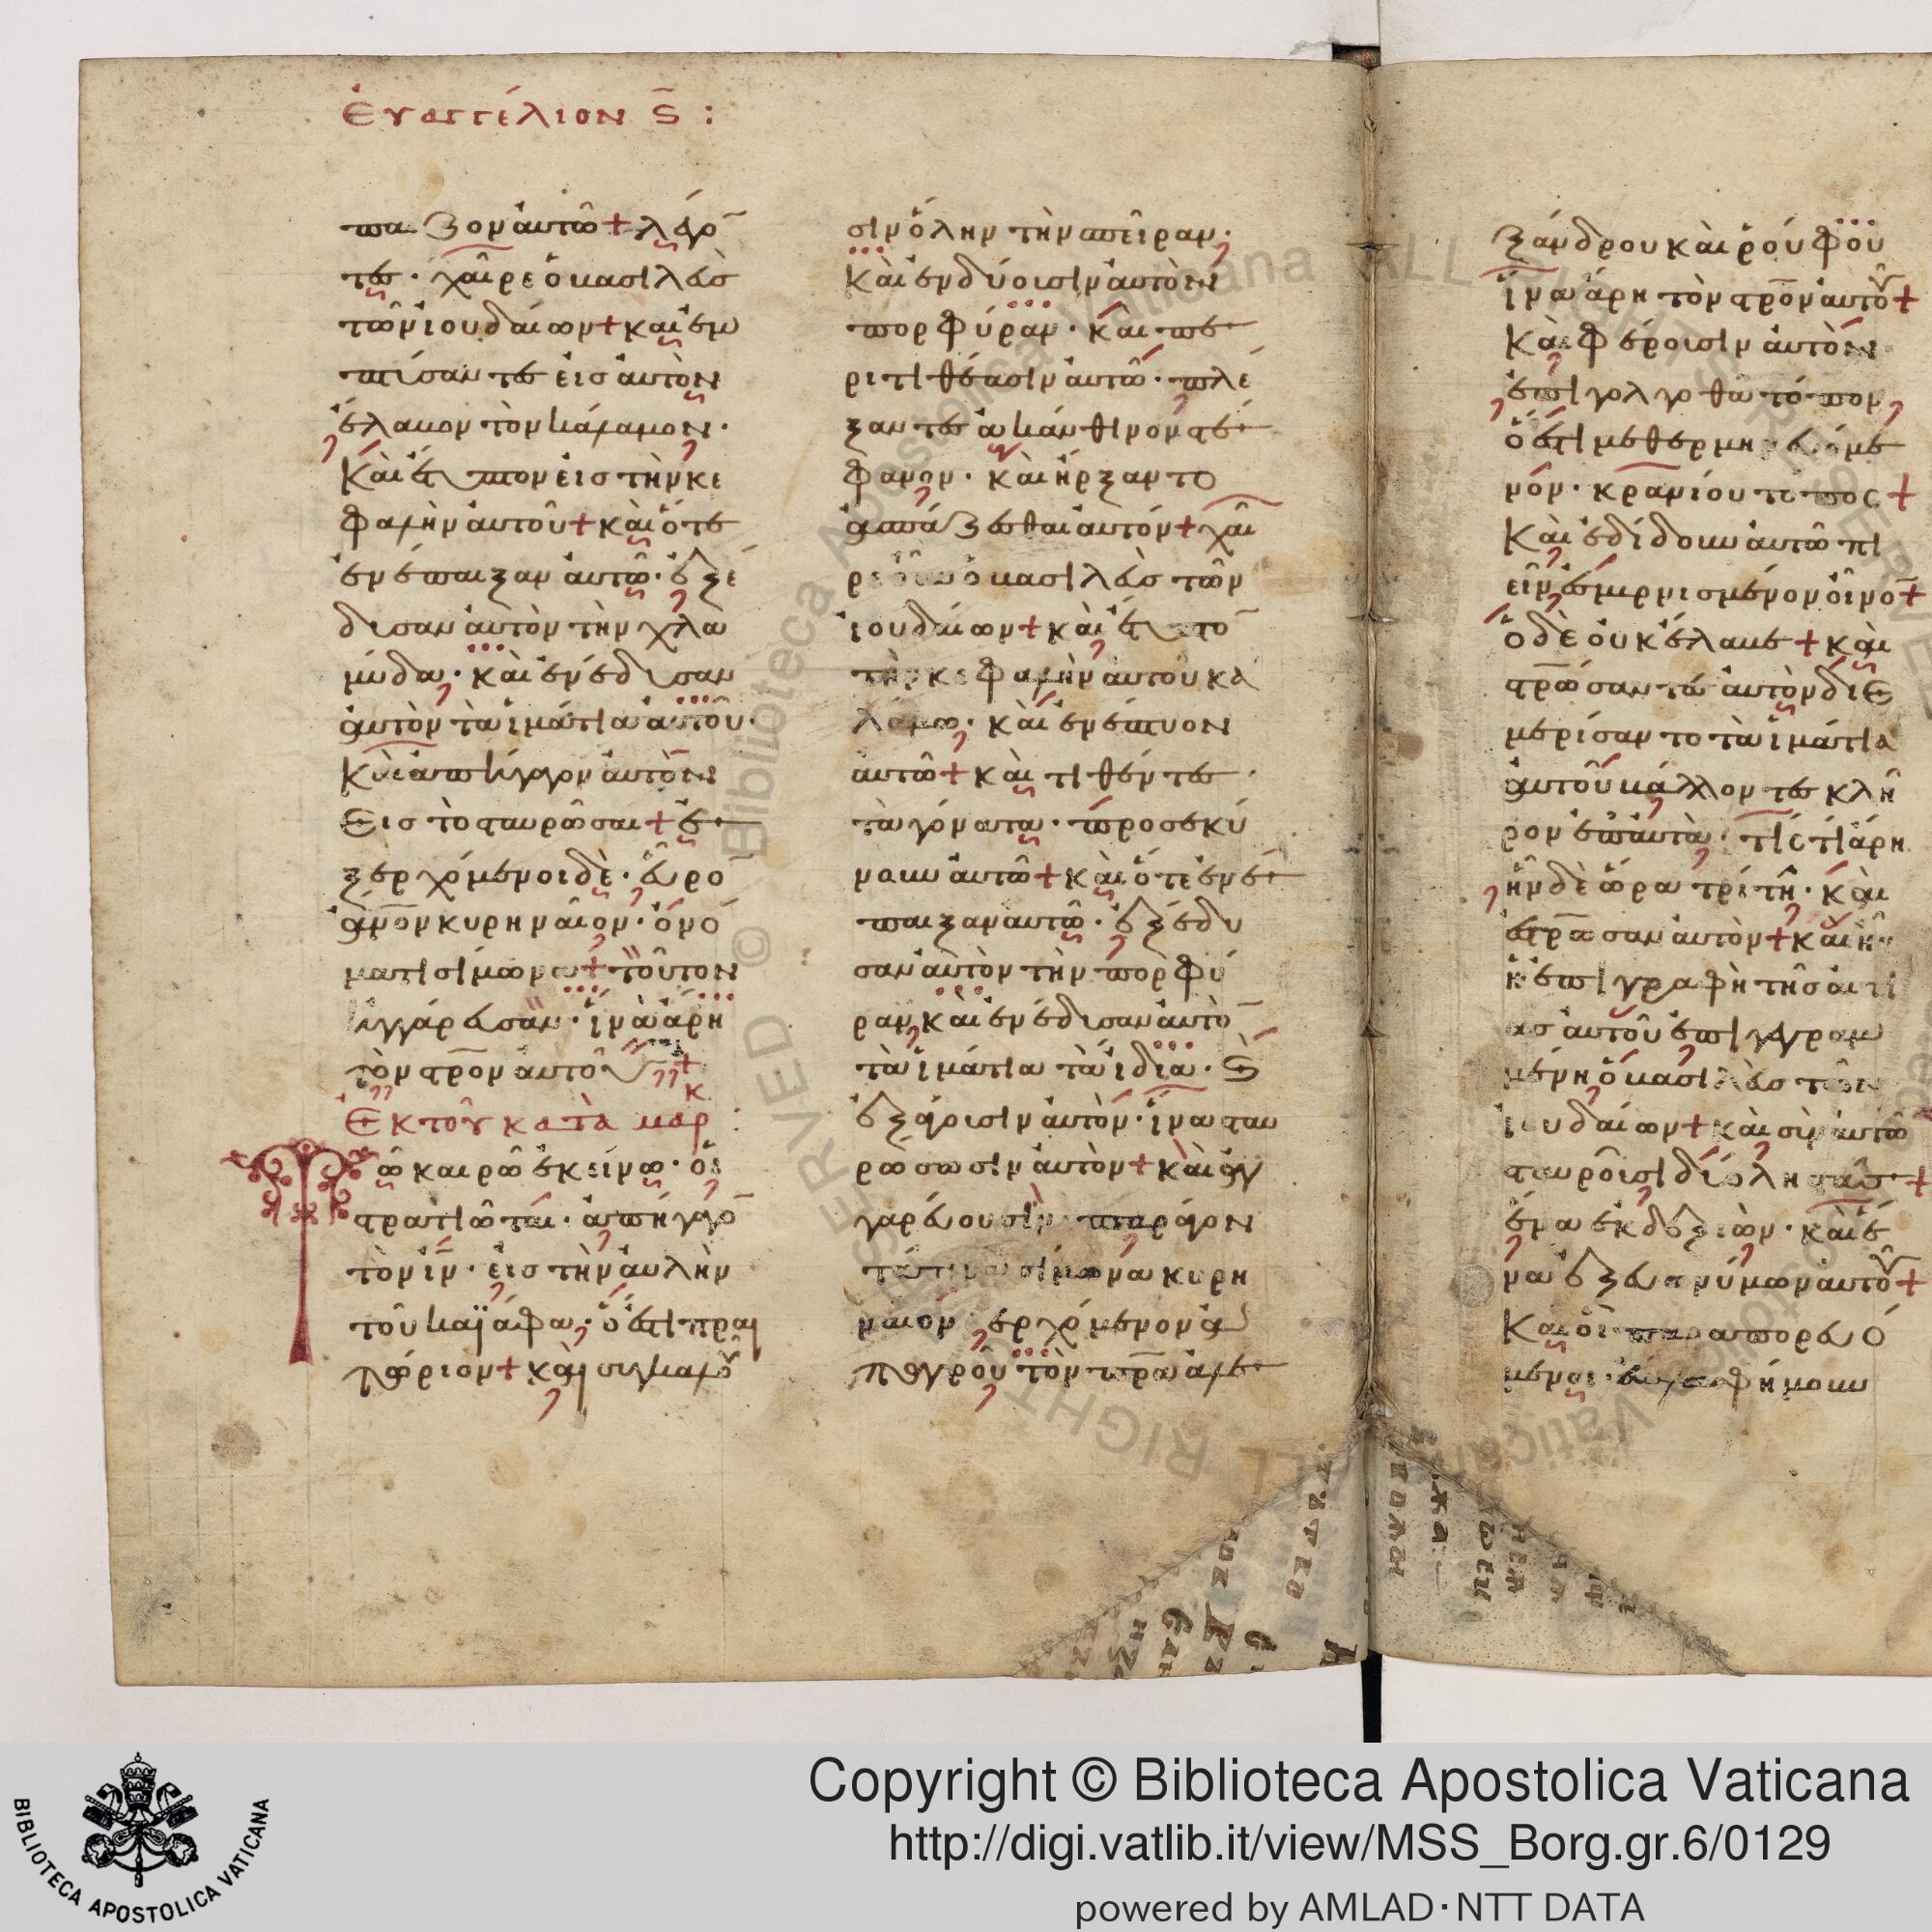 Ἐυαγγέλιον ϛ̄ :
παιζον ἀυτῶ + λέγο̄
τες · χαῖρε ὁ βασιλεὺσ
τῶν ἰουδαίων + καὶ ἐμ
πτύσαντες ἐισ ἀυτὸν
ἔλαβον τὸν κάλαμον ·
Καὶ ἔτυπτον ἐισ τὴν κε
φαλὴν ἀυτοῦ + καὶ ὅτε
ἐνέπαιξαν ἀυτῶ · ἐξέ
δυσαν ἀυτὸν τὴν χλα
μύδα · καὶ ἐνέδυσαν
ἀυτὸν τὰ ἱμάτια ἀυτοῦ ·
Καὶ ἀπήγαγον ἀυτὸν
Εἰσ τὸ σταυρῶσαι + ἐ
ξερχόμενοι δὲ · εὗρο̄
ἄνο̄ν κυρηναῖον · ὀνό
ματι σίμωνα + τοῦτον
ἠγγάρευσαν · ἵνα ἄρη
τὸν στρο̄ν ἀυτοῦ +
Ἐκ τοῦ κατὰ μαρκ :
Τῶ καιρῶ ἐκείνω · οἱ
στρατιῶται · ἀπήγαγο̄
τὸν ιν̄ · ἐισ τὴν ἀυλὴν
τοῦ καϊάφα · ὅ ἐστι πραι
τώριον + καὶ συγκαλοῦ
σιν ὅλην τὴν σπεῖραν ·
Καὶ ἐνδύουσιν ἀυτὸν
πορφύραν · καὶ πε
ριτιθέασιν ἀυτῶ · πλέ
ξαντες ἀκάνθινον στέ
φανον · καὶ ἤρξαντο
ἀσπάζεσθαι ἀυτόν + χαῖ
ρε ὁ βασιλεὺσ τῶν
ἰουδαίων + καὶ ἔτυπτο̄
τὴν κεφαλὴν ἀυτοῦ κα
λάμω · καὶ ἐνέπτυον
ἀυτῶ + καὶ τιθέντες ·
τὰ γόνατα · προσεκύ
νουν ἀυτῶ + καὶ ὅτε ἐνέ
παιξαν ἀυτῶ · ἐξέδυ
σαν ἀυτὸν τὴν πορφύ
ραν καὶ ἐνέδυσαν ἀυτὸ̄
τὰ ἱμάτια τὰ ἴδια · ϛ̀
ἐξάγουσιν ἀυτὸν · ἵνα σταυ
ρώσωσιν ἀυτὸν + καὶ ἀγ
γαρεύουσιν παράγον
τά τινα σίμωνα κυρη
ναῖον · ἐρχόμενον ἀ
π' ἀγροῦ τὸν πρ̄α ἀλε
ξάνδρου καὶ ῥούφου
ἵνα ἄρη τὸν στρο̄ν ἀυτοῦ +
Καὶ φέρουσιν ἀυτὸν
ἐπὶ γολγοθᾶ τόπον
ὅ ἐστι μεθερμηνευόμε
νόν · κρανίου τόπος +
Καὶ ἐδίδουν ἀυτῶ πι
εῖν ἐσμυρνισμένον οἶνο̄ +
ὁ δὲ οὐκ ἔλαβε + καὶ
στρ̄ώσαντες ἀυτὸν διε
μερίσαντο τὰ ἱμάτια
ἀυτοῦ βάλλοντες κλῆ
ρον ἐπ' ἀυτὰ · τίς τί ἄρη
ἦν δὲ ὥρα τρίτη · καὶ
ἐστρ̄ωσαν ἀυτὸν + καὶ ἦν
ἡ ἐπιγραφὴ τῆσ ἀιτί
ασ ἀυτοῦ ἐπιγεγραμ
μένη ὁ βασιλεὺσ τῶν
ἰουδαίων + καὶ σὺν ἀυτῶ
σταυροῦσι δύο ληστάσ +
ἕνα ἐκ δεξιῶν · καὶ ἕ
να ἐξ ἐυωνύμων ἀυτοῦ +
Καὶ οἱ παραπορευό
μενοι · ἐβλασφήμουν
Copyright © Biblioteca Apostolica Vaticana
http://digi.vatlib.it/view/MSS_Borg.gr.6/0129
powered by AMLAD·NTT DATA
BIBLIOTECA APOSTOLICA VATICANA